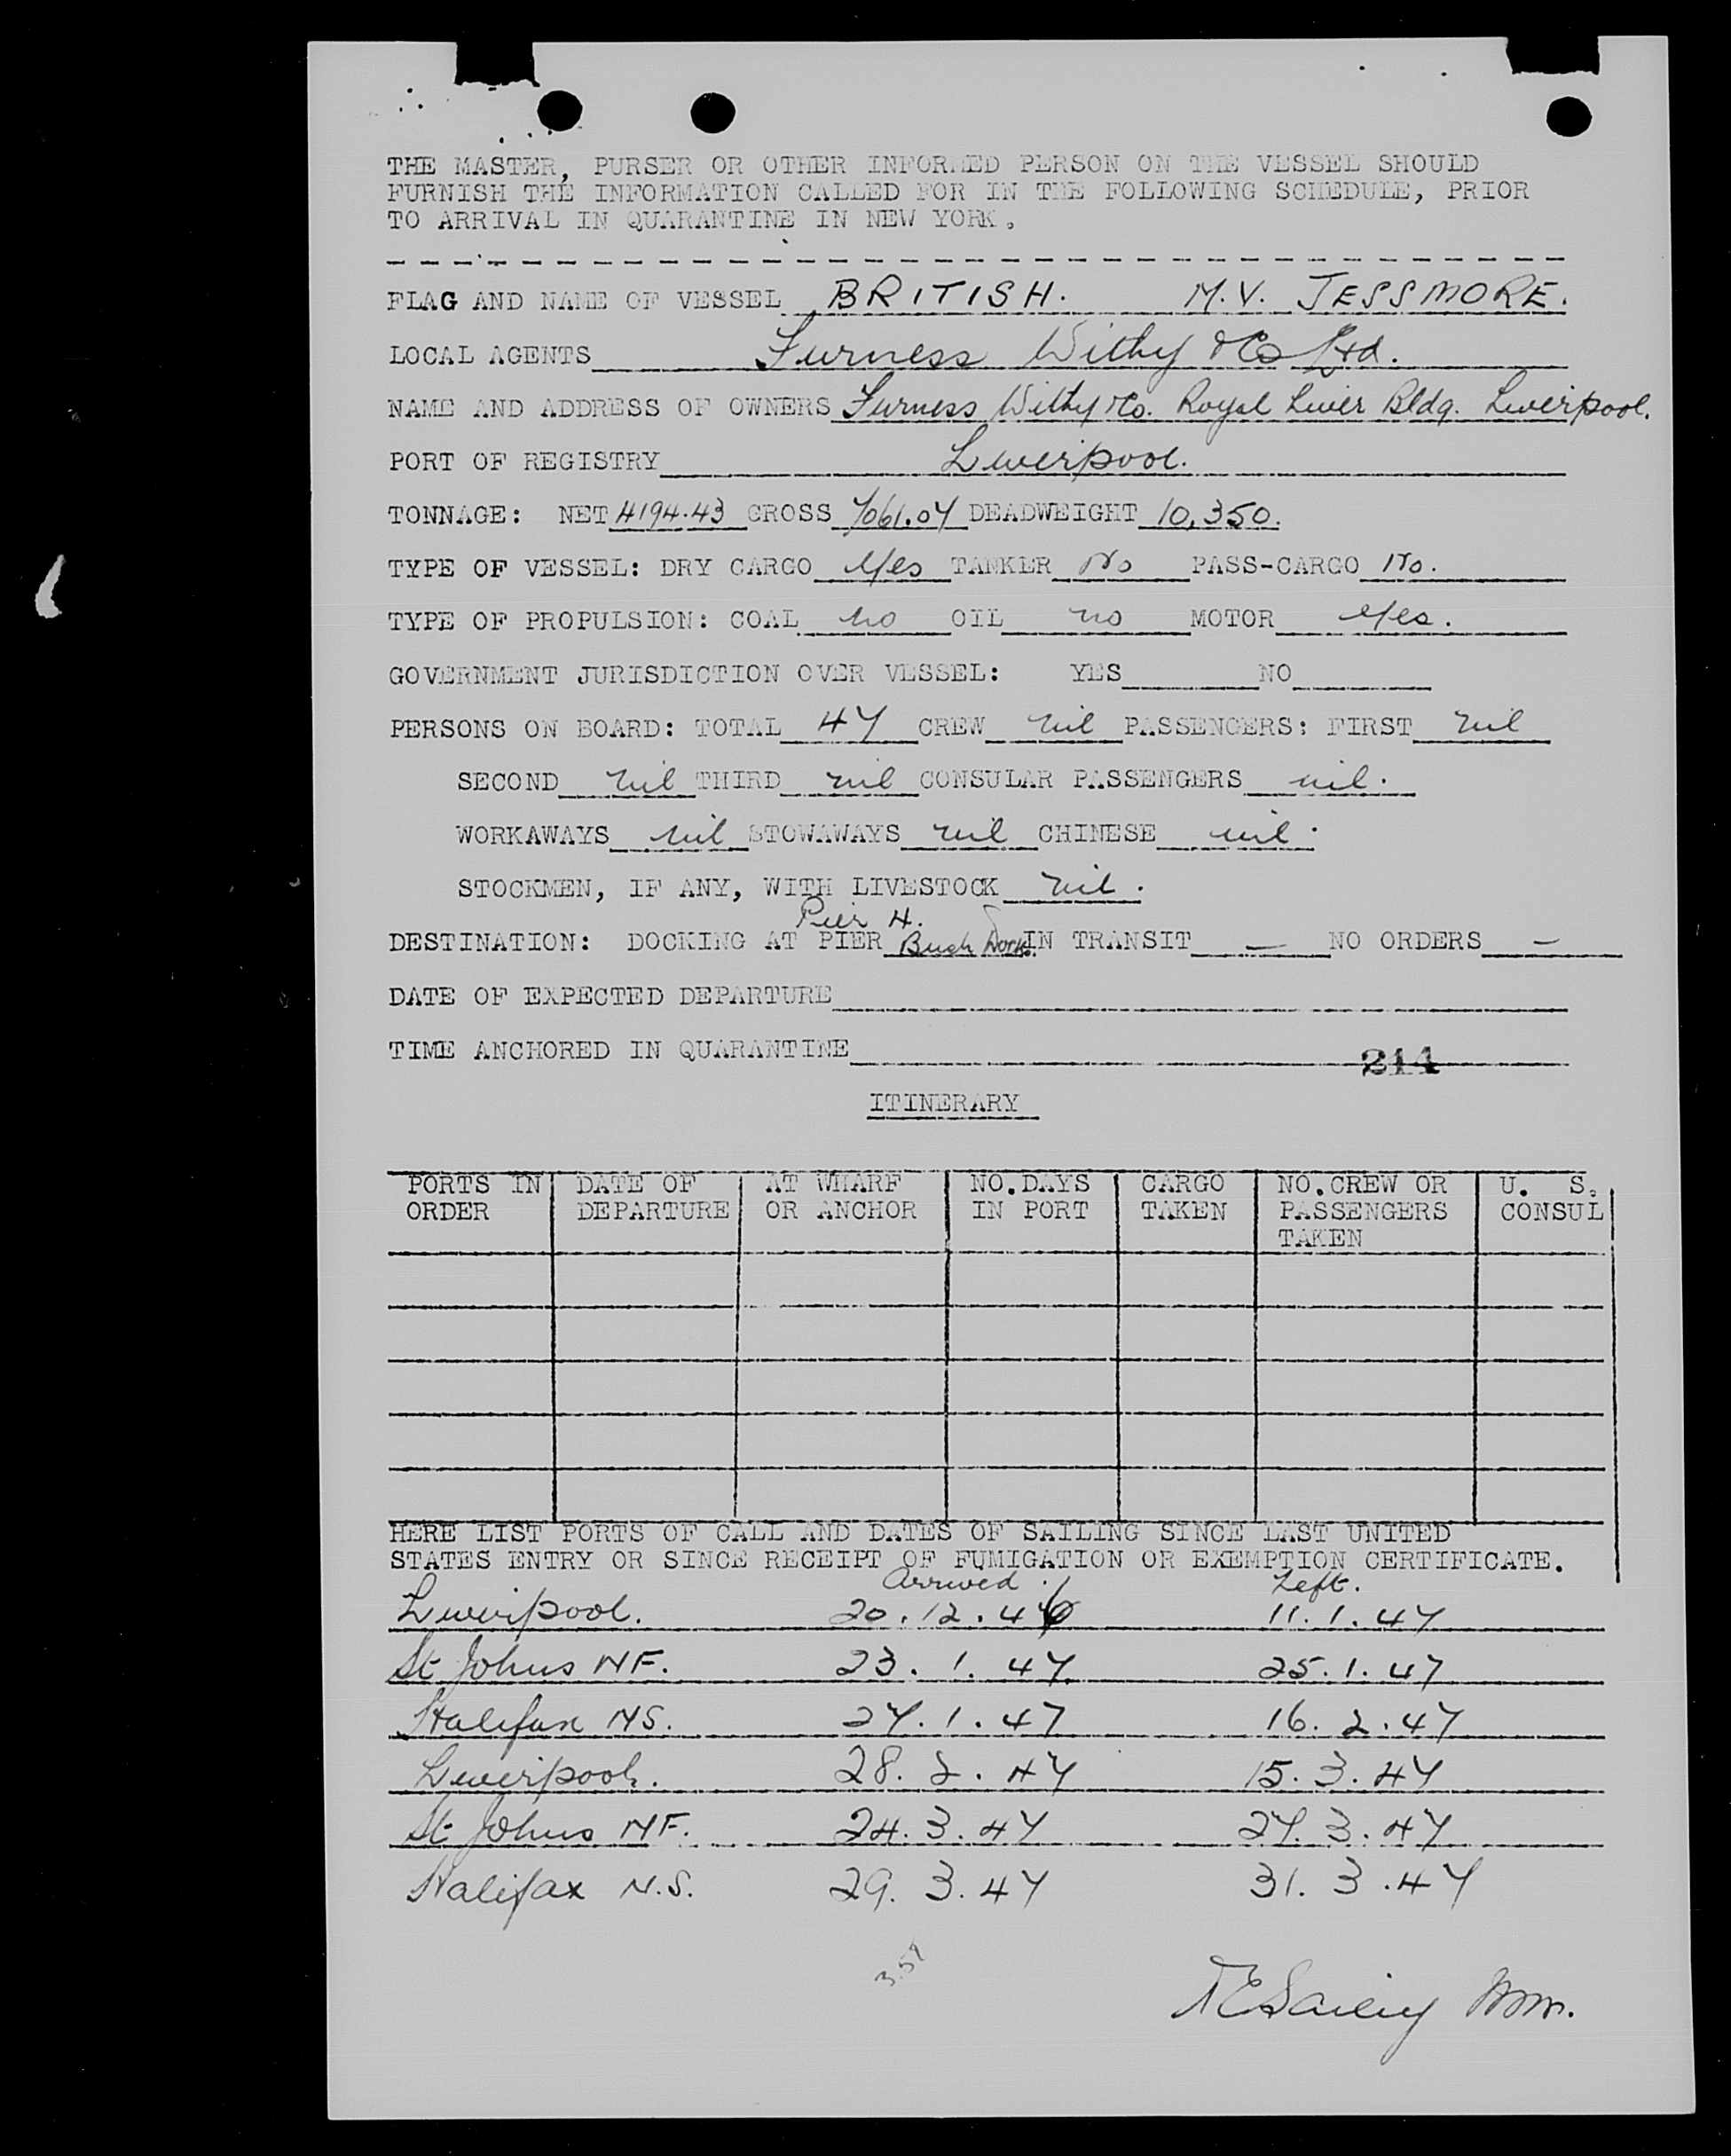 THE MASTER, PURSER OR OTHER INFORMED PERSON ON THE VESSEL SHOULD
FURNISH THE INFORMATION CALLED FOR IN THE FOLLOWING SCHEDULE, PRIOR
TO ARRIVAL IN QUARANTINE IN NEW YORK.
FLAG AND NAME OF VESSEL BRITISH. M.V. JESSMORE.
LOCAL AGENTS Furness Withy & Co Ltd.
NAME AND ADDRESS OF OWNERS Furness Withy & Co. Royal Liver Bldg. Liverpool.
PORT OF REGISTRY Liverpool.
TONNAGE: NET 4194.43 GROSS 7061.07 DEADWEIGHT 10,350.
TYPE OF VESSEL: DRY CARGO Yes TANKER No PASS-CARGO No.
TYPE OF PROPULSION: COAL no OIL no MOTOR Yes.
GOVERNMENT JURISDICTION OVER VESSEL: YES NO
PERSONS ON BOARD: TOTAL 47 CREW nil PASSENGERS: FIRST nil
SECOND nil THIRD nil CONSULAR PASSENGERS nil.
WORKAWAYS nil STOWAWAYS nil CHINESE nil.
STOCKMEN, IF ANY, WITH LIVESTOCK nil.
Pier 4.
DESTINATION: DOCKING AT PIER Bush Docks. IN TRANSIT — NO ORDERS —
DATE OF EXPECTED DEPARTURE
TIME ANCHORED IN QUARANTINE
214
ITINERARY
PORTS IN DATE OF AT WHARF NO. DAYS CARGO NO. CREW OR U. S.
ORDER DEPARTURE OR ANCHOR IN PORT TAKEN PASSENGERS CONSUL
TAKEN
HERE LIST PORTS OF CALL AND DATES OF SAILING SINCE LAST UNITED
STATES ENTRY OR SINCE RECEIPT OF FUMIGATION OR EXEMPTION CERTIFICATE.
Arrived. Left.
Liverpool. 20.12.46 11.1.47
St Johns NF. 23.1.47 25.1.47
Halifax NS. 27.1.47 16.2.47
Liverpool. 28.2.47 15.3.47
St Johns NF. 24.3.47 27.3.47
Halifax N.S. 29.3.47 31.3.47